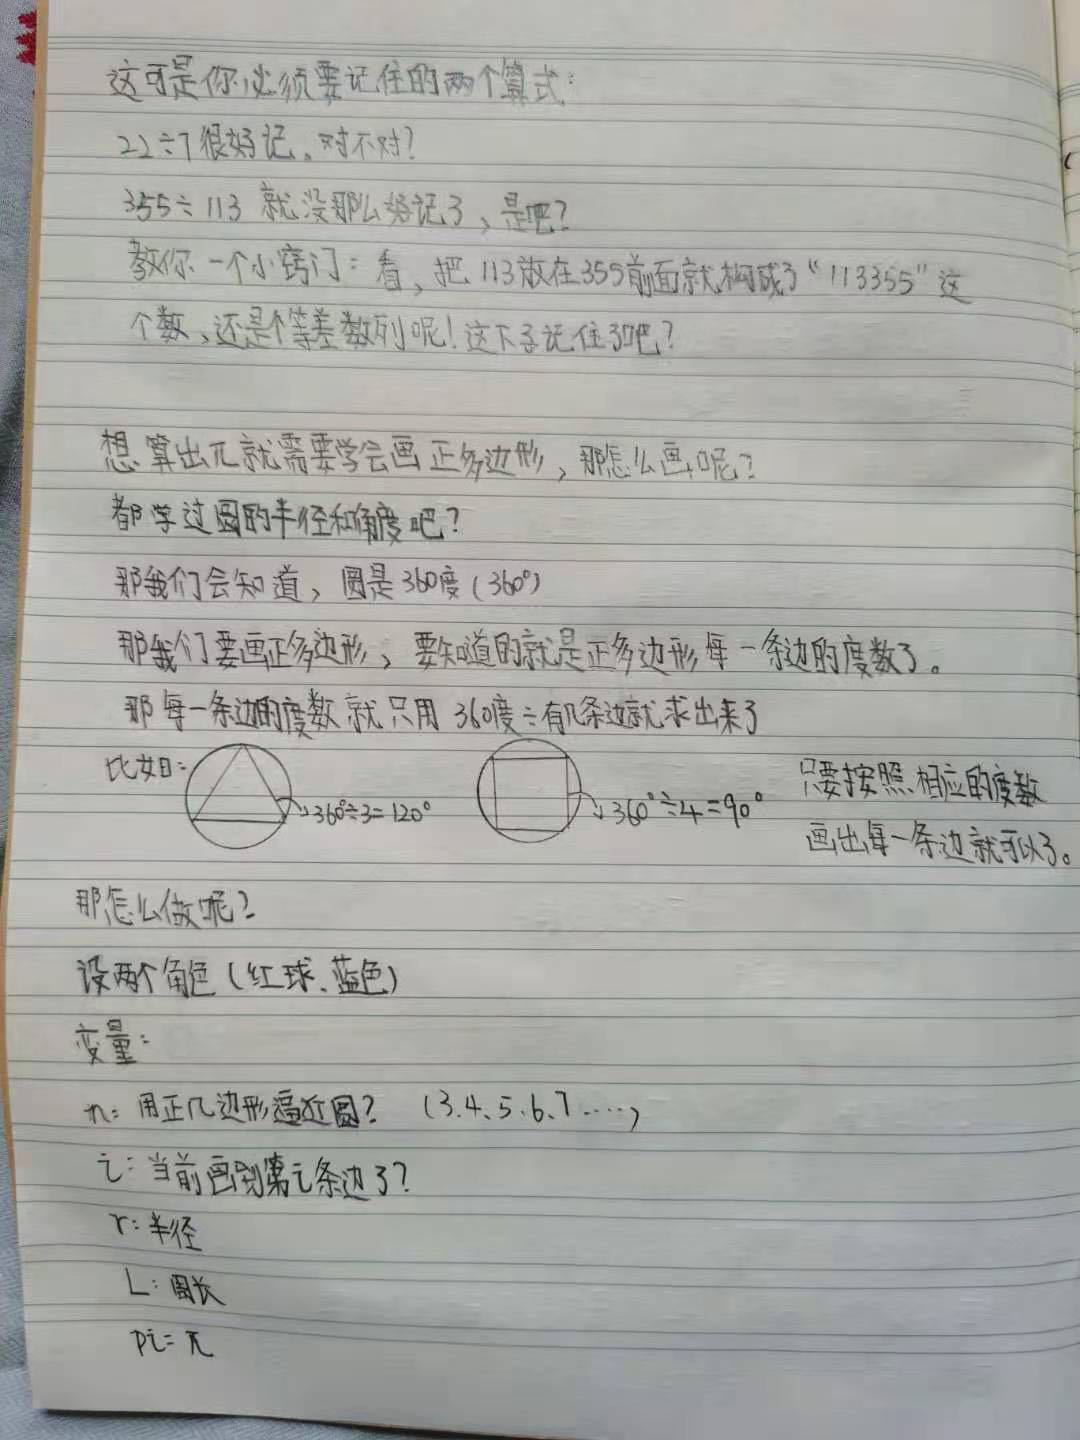 这可是你必须要记住的两个算式：
22÷7很好记。对不对？
355÷113 就没那么好记了，是吧？
教你一个小窍门：看，把113放在355前面就构成了“113355”这
个数，还是个等差数列呢！这下子记住了吧？
想算出π就需要学会画正多边形，那怎么画呢？
都学过圆的半径和角度吧？
那我们会知道，圆是360度（360°）
那我们要画正多边形，要知道的就是正多边形每一条边的度数了。
那每一条边的度数就只用 360度÷有几条边就求出来了
比如：
360°÷3=120°
360°÷4=90°
只要按照相应的度数
画出每一条边就可以了。
那怎么做呢？
设两个角色（红球、蓝色）
变量：
n：用正几边形逼近圆？（3、4、5、6、7……）
i：当前画到第i条边了？
r：半径
L：周长
pi=π